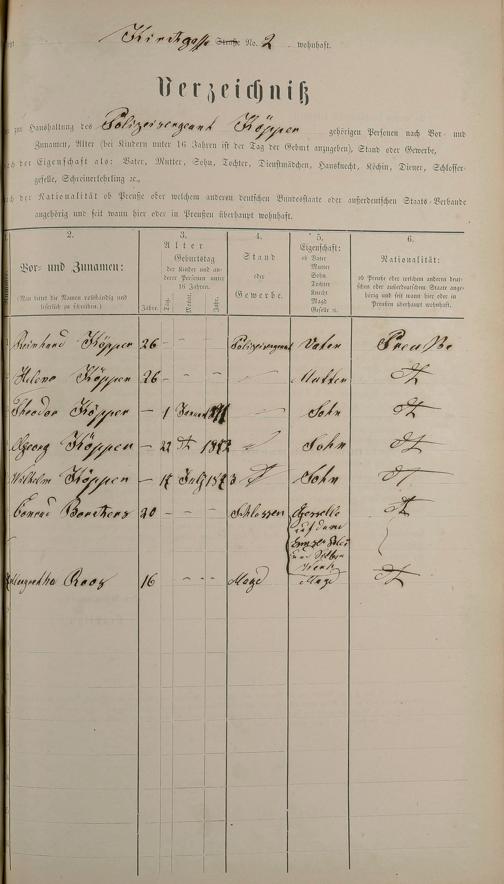 Kirchgasse Straße No. 2 wohnhaft.
Verzeichniß
zur Haushaltung des Polizeisergeant Köpper gehörigen Personen nach Vor- und
Zunamen, Alter (bei Kindern unter 16 Jahren ist der Tag der Geburt anzugeben), Stand oder Gewerbe,
nach der Eigenschaft als: Vater, Mutter, Sohn, Tochter, Dienstmädchen, Hausknecht, Köchin, Diener, Schlosser-
geselle, Schreinerlehrling ꝛc.,
nach der Nationalität ob Preuße oder welchem anderen deutschen Bundesstaate oder außerdeutschen Staats-Verbande
angehörig und seit wann hier oder in Preußen überhaupt wohnhaft.
2. 3. 4. 5. 6.
Vor- und Zunamen:
(Man bittet die Namen vollständig und
leserlich zu schreiben.)
Alter
Geburtstag
der Kinder und an-
derer Personen unter
16 Jahren
Jahre. Tag. Monat. Jahr.
Stand
oder
Gewerbe.
Eigenschaft:
ob Vater
Mutter
Sohn
Tochter
Knecht
Magd
Geselle ꝛc.
Nationalität:
ob Preuße oder welchem anderen deut-
schen oder außerdeutschen Staate ange-
hörig und seit wann hier oder in
Preußen überhaupt wohnhaft.
Reinhard Köpper 26 - - - Polizeisergeant Vater Preuße
Helene Köpper 26 - - - Mutter dt
Theodor Köpper - 1 Januar Sohn dt
Georg Köpper - 22 dt 1872 Sohn dt
Wilhelm Köpper - Juli Sohn dt
Conrad 20 - Schlosser Geselle dt
auf dem
und
Werk
Margaretha Roos 16 - - - Magd Magd dt